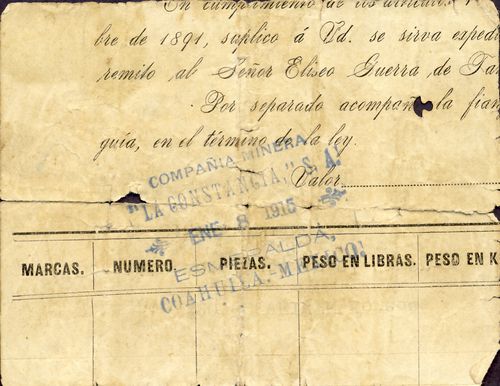 En cumplimiento de los artículos
bre de 1891, suplico á Vd. se sirva expedi
remito al Señor Eliseo Guerra, de
Por separado acompaño la fian
guía, en el término de la ley.
Valor
COMPAÑIA MINERA
"LA CONSTANCIA," S. A.
ENE 8 1915
ESMERALDA,
COAHUILA. MEXICO!
MARCAS. NUMERO. PIEZAS. PESO EN LIBRAS. PESO EN K